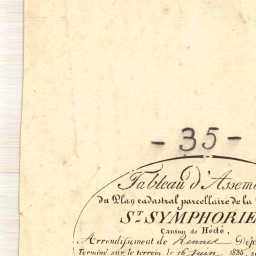 - 35 -
Tableau d'Assem
du Plan cadastral parcellaire de la
ST SYMPHORIE
Canton de Hédé,
Arrondissement de Rennes Dép
Terminé sur le terrain le 16 Juin 1835,